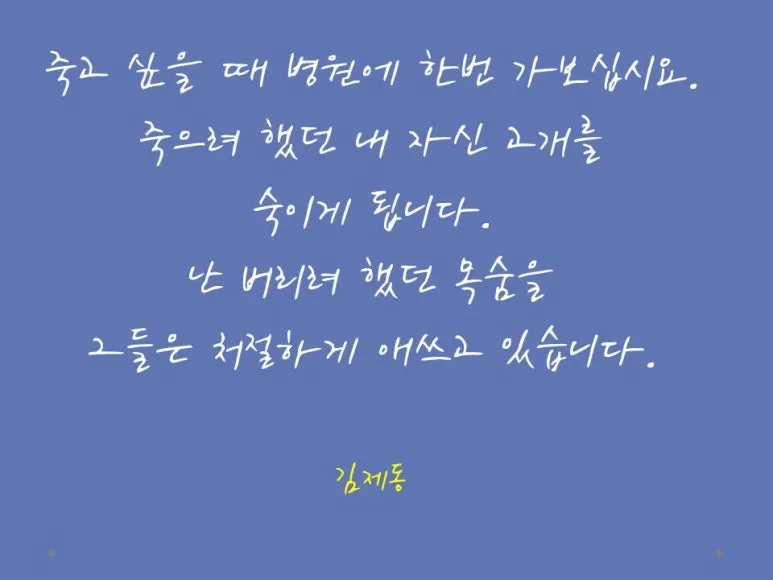 죽고 싶을 때 병원에 한번 가보십시요.
죽으려 했던 내 자신 고개를
숙이게 됩니다.
난 버리려 했던 목숨을
그들은 처절하게 애쓰고 있습니다.
김제동